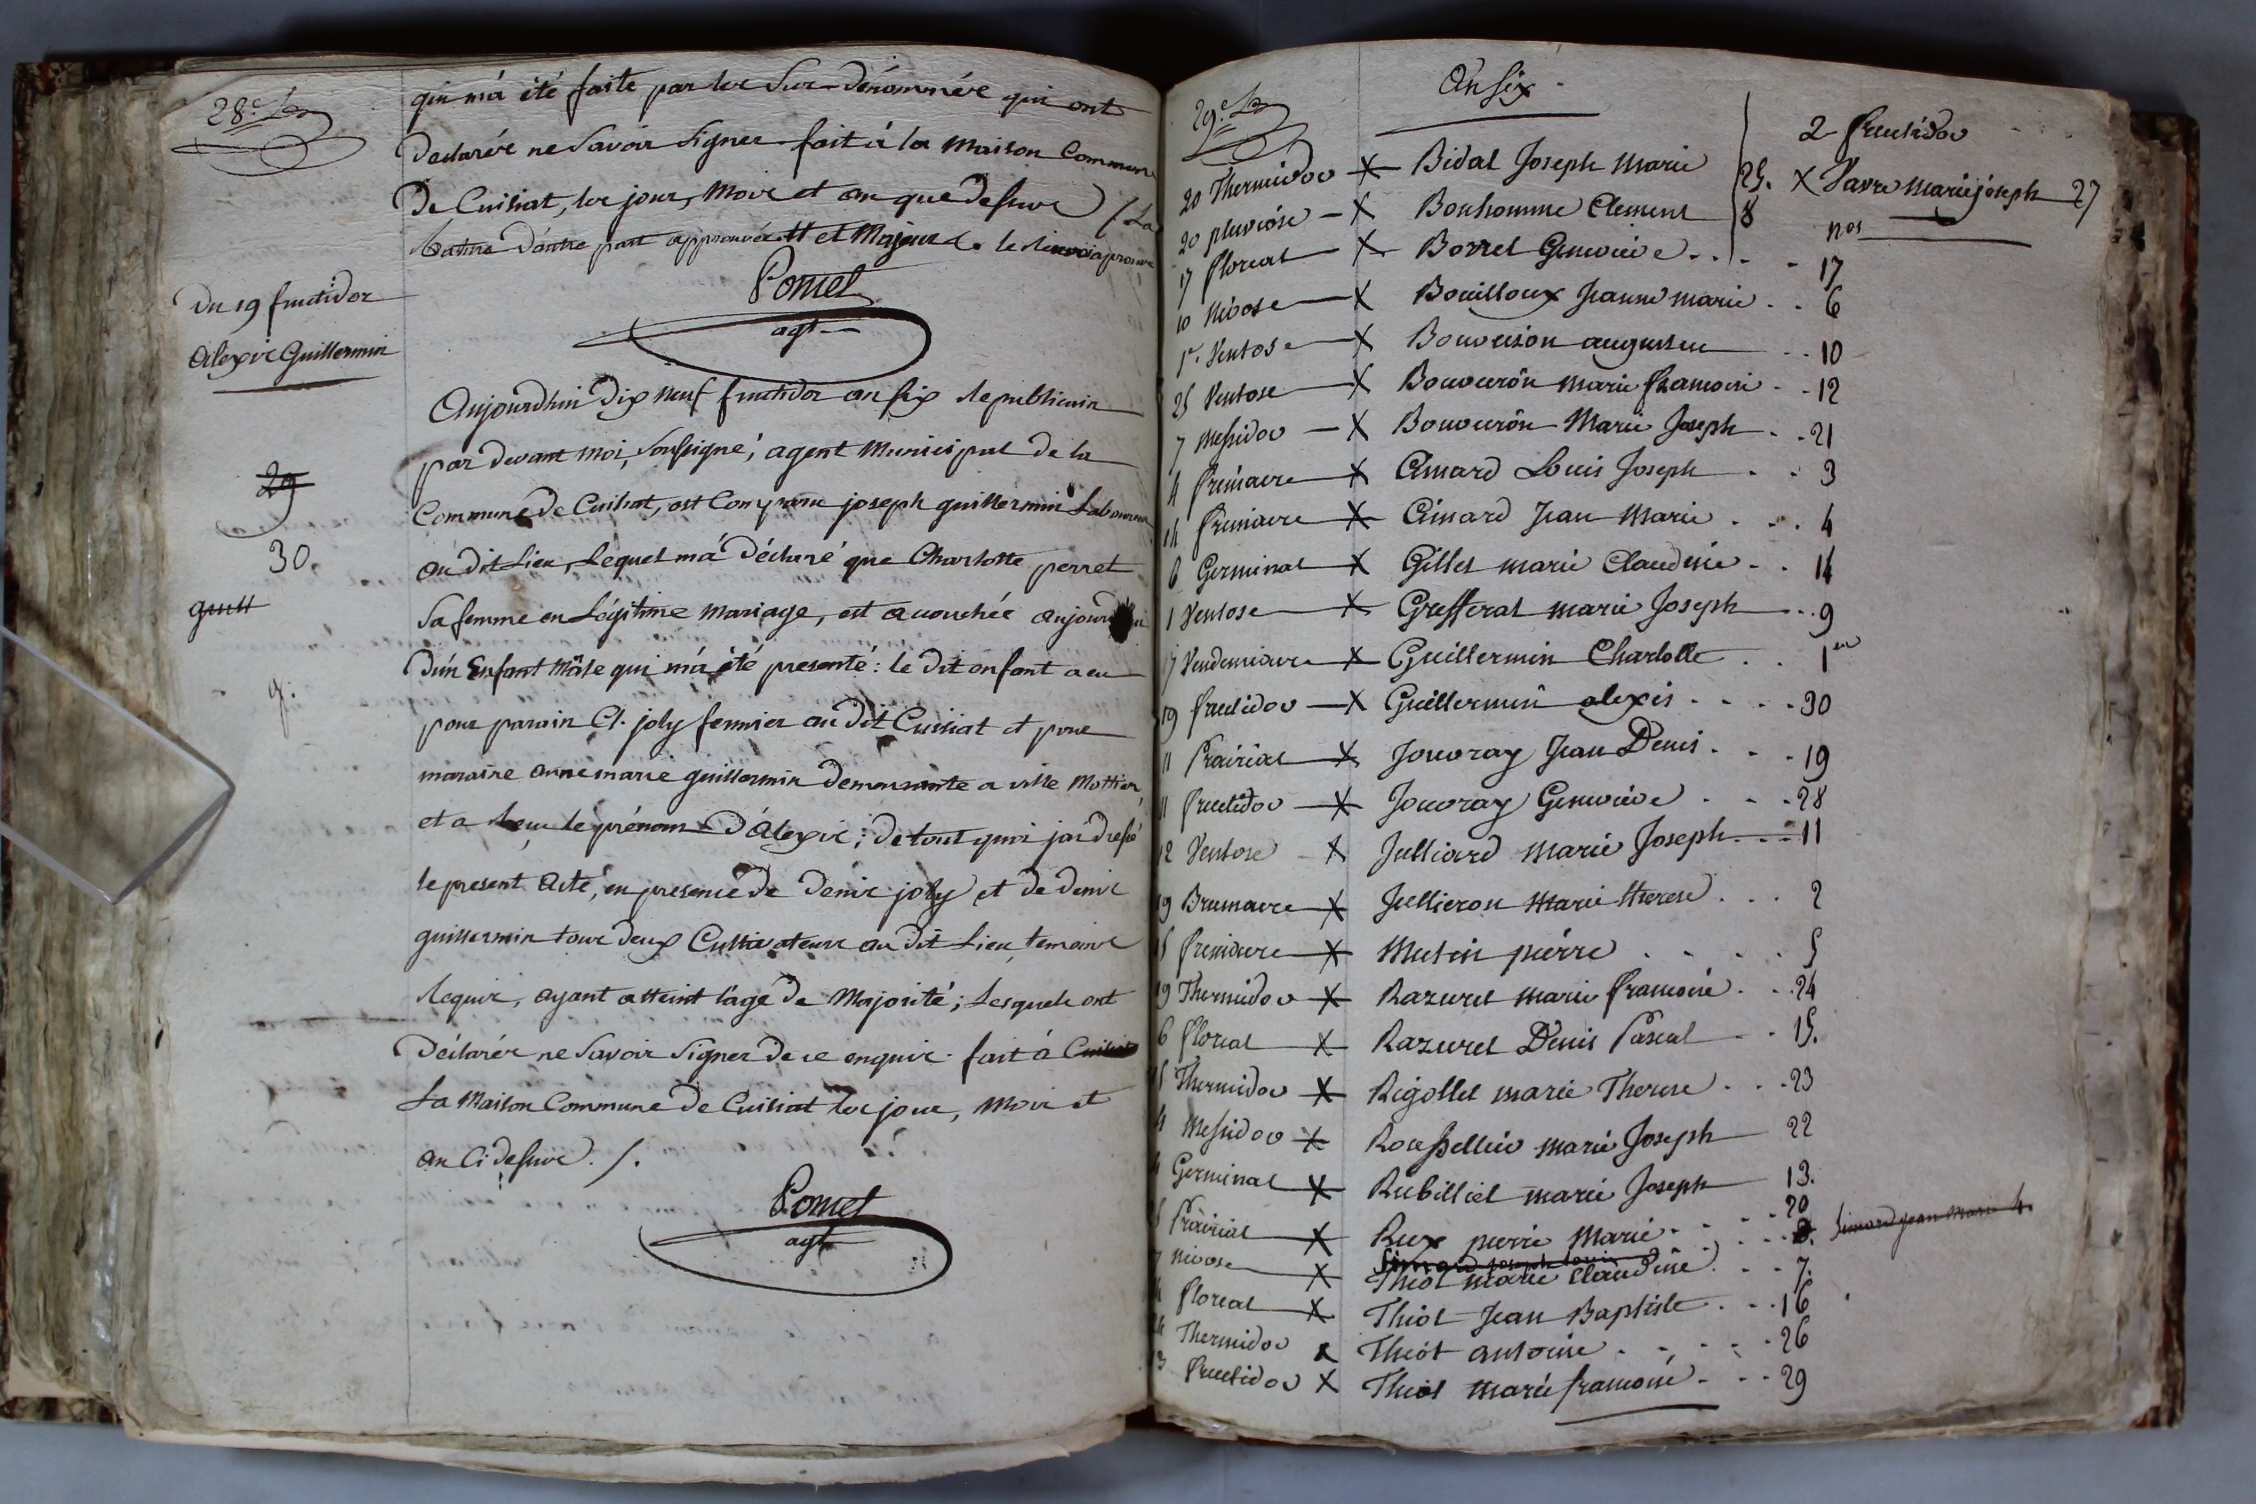 28e
qui m'a été faite par les Sus-dénommés qui ont
declarés ne Savoir Signer fait à la Maison Commune
De Cuisiat, les jour, Mois et an que dessus /. La
Rature D'autre part approuvée et le Renvoi approuvé
Pomel
agt
Du 19 fructidor
Alexis Guillermin
29
30.
guill
Aujourdhui Dix neuf fructidor an six Republicain
par devant moi, Soussigné, agent Municipal de la
Commune de Cuisiat, est Comparu joseph guillermin Laboureur
au dit Lieu, Lequel m'a Déclaré que Charlotte perret
Sa femme en Légitime Mariage, est acouchée aujourdhui
D'un Enfant Mâle qui m'a été presenté : le dit enfant a eu
pour parain Cl. joly fermier au dit Cuisiat et pour
maraine anne marie guillermin demeurante a ville Mottier,
et a Reçu le prénom D'Alexis ; de tout quoi j'ai dressé
le present Acte, en presence de Denis joly et de denis
guillermin tous deux Cultivateurs au dit Lieu, temoins
Requis, ayant atteint l'age de Majorité ; Lesquels ont
Déclarés ne Savoir Signer de ce enquis. fait à Cuisiat
La Maison Commune de Cuisiat les jour, Mois et
an Ci dessus. /.
Pomel
agt
29e
An Six
2 fructidor
20 Thermidor X Bidal Joseph Marie 25. X Favre Marie joseph 27
20 pluviôse X Bonhomme Clement 8
nos
17 floreal X Borrel Genevieve 17
10 Nivose X Bouilloux Jeanne marie 6
1r. Ventose X Bouveiron augustin 10
25 Ventose X Bouveiron marie francoise 12
7 Messidor X Bouveiron Marie Joseph 21
4 frimaire X Cimard Louis Joseph 3
14 frimaire X Cimard Jean Marie 4
6 Germinal X Gillet marie Claudine 14
1 Ventose X Grefferat marie Joseph 9
17 Vendemiaire X Guillermin Charlotte 1er
19 fructidor X Guillermin alexis 30
11 Prairial X Jouvray Jean Denis 19
11 fructidor X Jouvray Genevieve 28
12 Ventose X Julliard Marie Joseph 11
19 Brumaire X Jullieron Marie therese 2
15 frimaire X Mutin pierre 5
19 Thermidor X Razuret marie francoise 24
6 floreal X Razuret Denis Pascal 15.
15 Thermidor X Rigollet marie Therese 23
Messidor X Rousselliée marie Joseph 22
Germinal X Rubilliet marie Joseph 13.
Prairial X Rux pierre Marie 20
Simard joseph louis 3. Simard jean marie 4.
Nivose X Thiot marie Claudine 7.
floreal X Thiot Jean Baptiste 16
Thermidor X Thiot antoine 26
fructidor X Thiot marie francoise 29